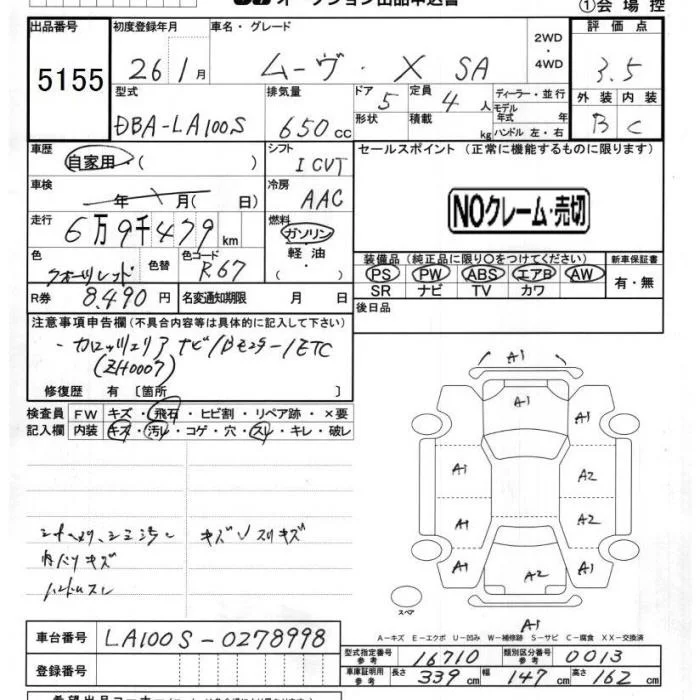 オークション出品申込書
①会場控
出品番号 初度登録年月 車名・グレード 2WD・4WD 評価点
5155 26 1月 ムーヴ・X SA 3.5
型式 排気量 ドア 5 定員 4人 ディーラー・並行 外装 内装
DBA-LA100S 650cc 形状 積載 kg モデル年式 年 ハンドル 左・右 B C
車歴 シフト セールスポイント (正常に機能するものに限ります)
自家用・( ) I CVT
車検 冷房
年 月(日) AAC
NOクレーム・売切
走行 燃料
6万9千479km ガソリン・軽油・( )
色 色替 色コード 装備品(純正品に限り○をつけてください) 新車保証書
R67 PS PW ABS エアB AW 有・無
SR ナビ TV カワ
R券 8,490円 名変通知期限 月 日 後日品
注意事項申告欄(不具合内容等は具体的に記入して下さい)
・カロッツェリアナビ/Bモニター/ETC
(ZH0007)
修復歴 有〔箇所 〕
検査員 FW キズ・飛石・ヒビ割・リペア跡・×要
記入欄 内装 キズ・汚レ・コゲ・穴・スレ・キレ・破レ
キズ スリキズ
内バリキズ
A1
A1 A1
A1 A2
A1 A2
A1 A2 A1
スペア
A1
A-キズ E-エクボ U-凹み W-補修跡 S-サビ C-腐食 XX-交換済
車台番号 LA100S-0278998
型式指定番号 参考 16710 類別区分番号 参考 0013
登録番号 車庫証明用 参考 長さ 339cm 幅 147cm 高さ 162cm